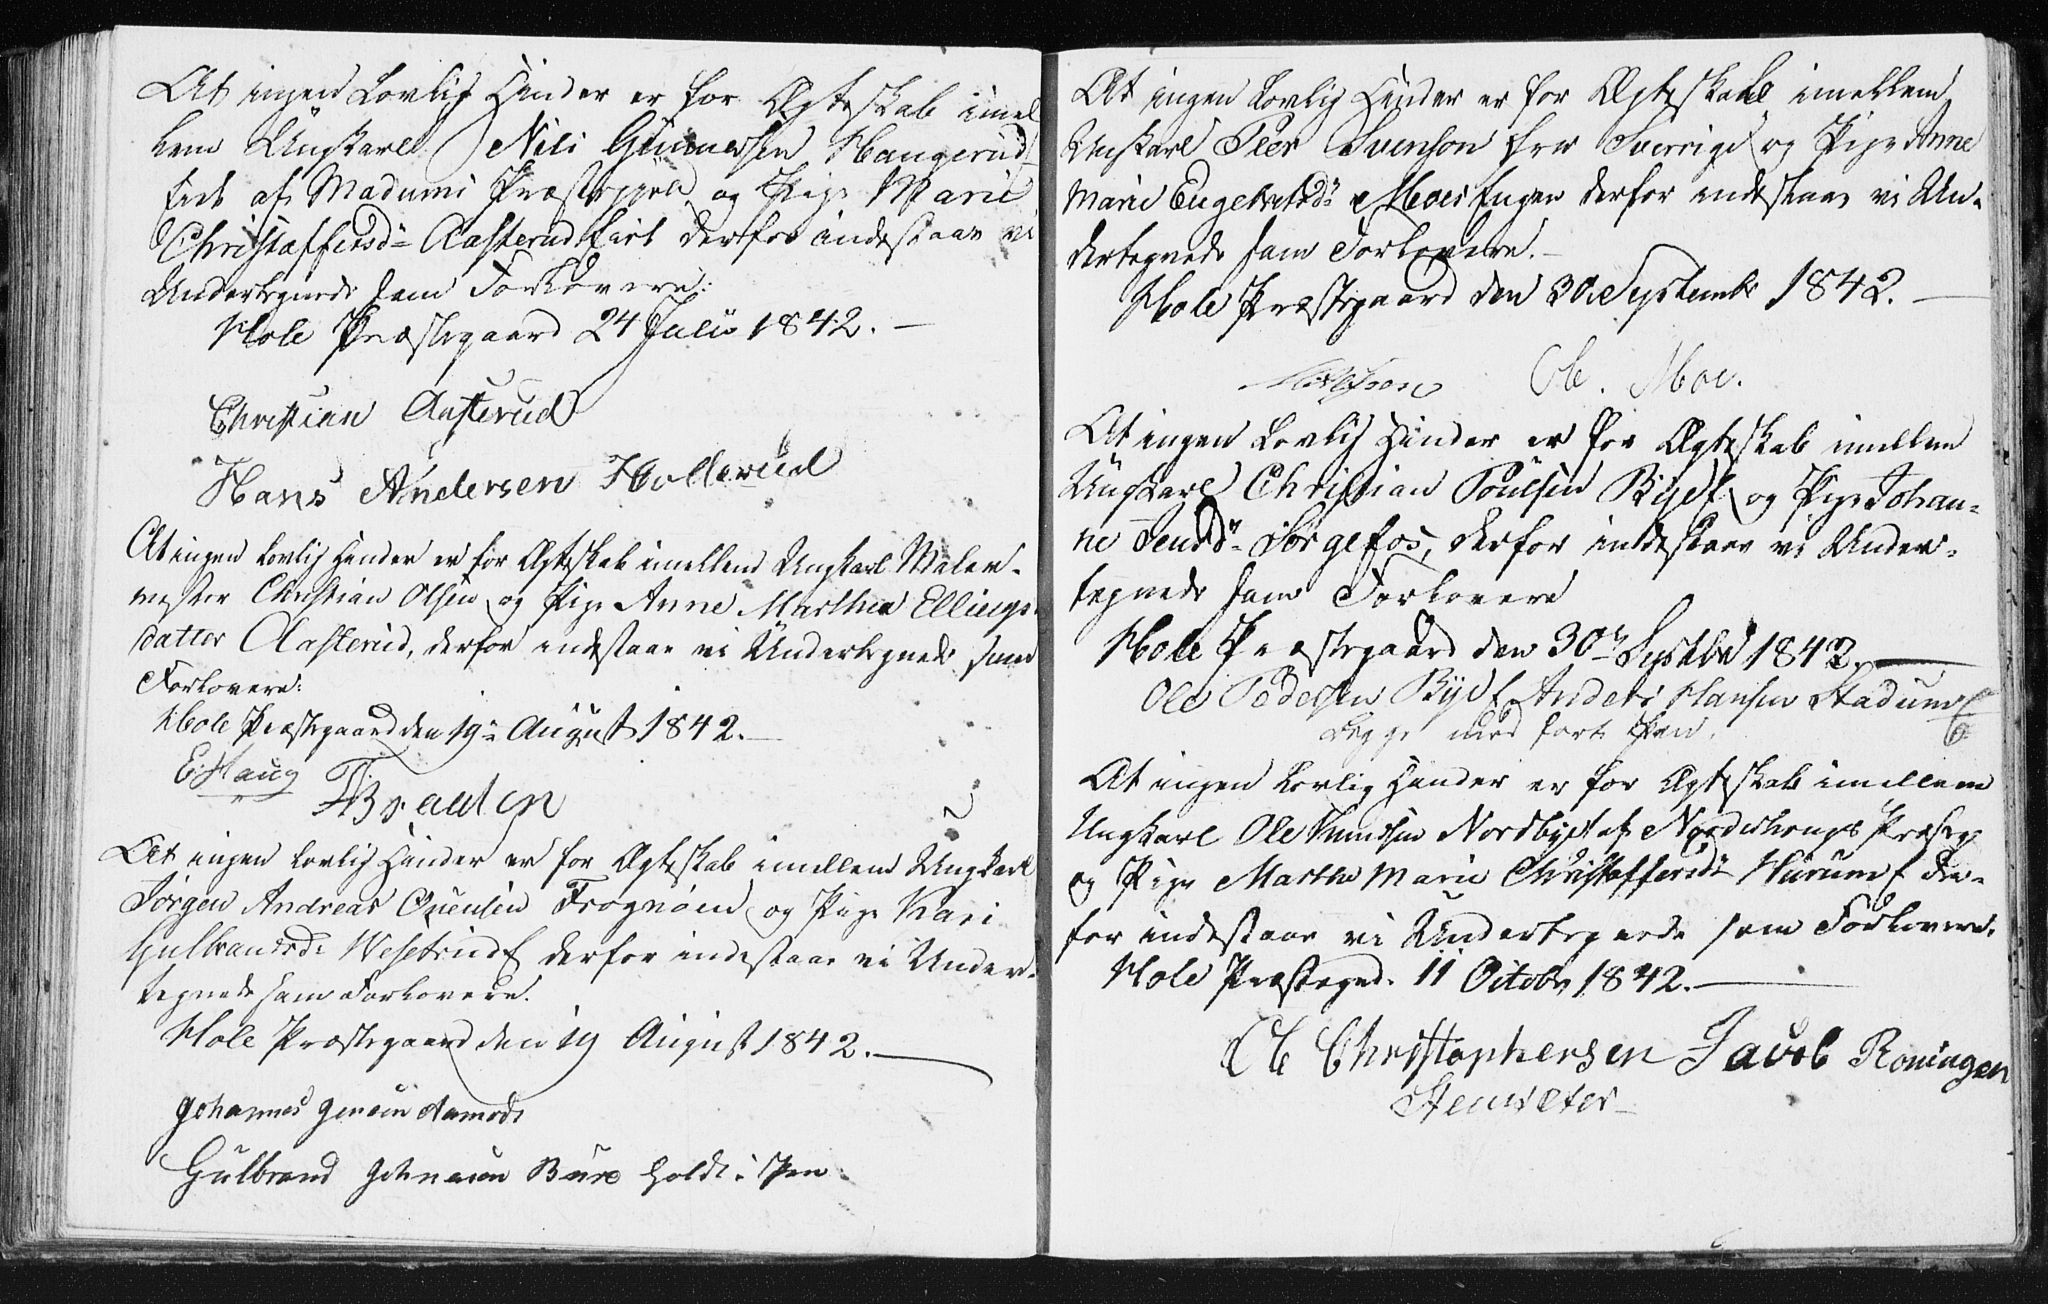 At ingen Lovlig Hinder er for Ægteskab imel
lem Ungkarl Nils Gunnersen Haugerud
Eiet af Modums Præstegjeld og Pige Marie
Christoffersd: Aasterud Eiet derfor indestaae vi
Undertegnede som Forlovere:
Hole Præstegaard 24 Juli 1842. —
Christian Aasterud
Hans Andersen Hollerud
At ingen lovlig Hinder er for Ægteskab imellem Ungkarl Maler-
mester Christian Olsen og Pige Anne Marthea Ellings-
datter Aasterud, derfor indestaae vi Undertegnede som
Forlovere:
Hole Præstegaard den 19: August 1842. —
E. Haug
Braaten
At ingen lovlig Hinder er for Ægteskab imellem Ungkarl
Jørgen Andreas Ovensen Frognøen og Pige Kari
Gulbrandsd: Vesetrud E derfor indestaae vi Under-
tegnede som Forlovere.
Hole Præstegaard den 19 August 1842. —
Johannes Jensen
Gulbrand Johnsen Bure holdt i Pen
At ingen lovlig Hinder er for Ægteskab imellem
Ungkarl Peer Svenson fra Sverrige og Pige Anne
Marie Engebretsd: Moe Eugen derfor indestaae vi Un-
dertegnede som Forlovere. —
Hole Præstegaard den 30 Septembr 1842. —
Ole. Moe.
At ingen Lovlig Hinder er for Ægteskab imellem
Ungkarl Christian Poulsen Bye E og Pige Johan-
ne Jensd: Sørgefos, derfor indestaae vi Under-
tegnede som Forlovere
Hole Præstegaard den 30te Septbr 1842. —
Ole Pedersen Bye E Anders Hansen Stadum E
begge med ført Pen.
At ingen Lovlig Hinder er for Ægteskab imellem
Ungkarl Ole Knudsen Nordbye E af Norderhougs Præsteg
og Pige Marthe Marie Christoffersd: Hurum E der-
for indestaae vi Undertegnede som Forlovere.
Hole Præstegrd. 11 October 1842. —
Ole Christophersen Jacob Roningen